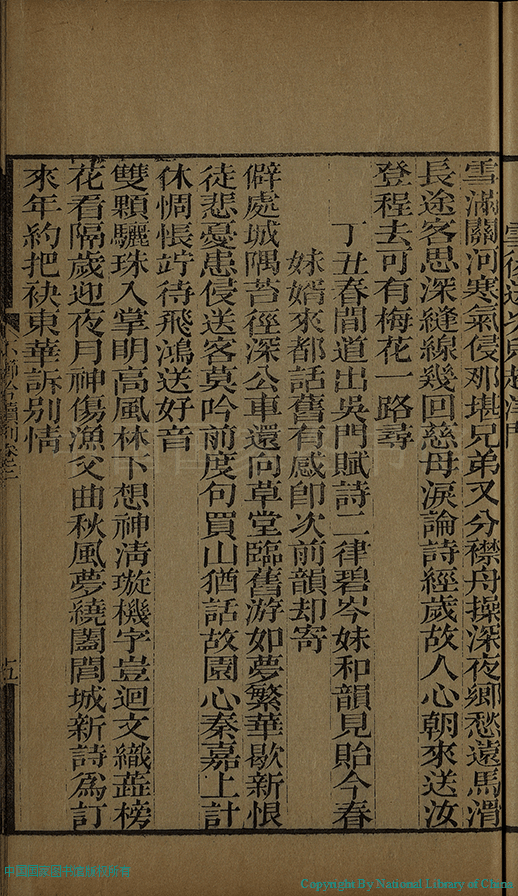 雪滿關河寒氣侵那堪兄弟又分襟舟操深夜鄉愁遠馬滑
長途客思深縫線幾回慈母淚論詩經歲故人心朝來送汝
登程去可有梅花一路尋
丁丑春間道出吳門賦詩二律碧岑妹和韻見貽今春
妹婿來都話舊有感即次前韻却寄
僻處城隅苔徑深公車還向草堂臨舊游如夢繁華歇新恨
徒悲憂患侵送客莫吟前度句買山猶話故園心秦嘉上計
休惆悵竚待飛鴻送好音
雙顆驪珠入掌明高風林下想神淸璇機字豈迴文織蕋榜
花看隔歲迎夜月神傷漁父曲秋風夢繞闔閭城新詩爲訂
來年約把袂東華訴别情
卷二
十五
中国国家图书馆版权所有
Copyright By National Library of China